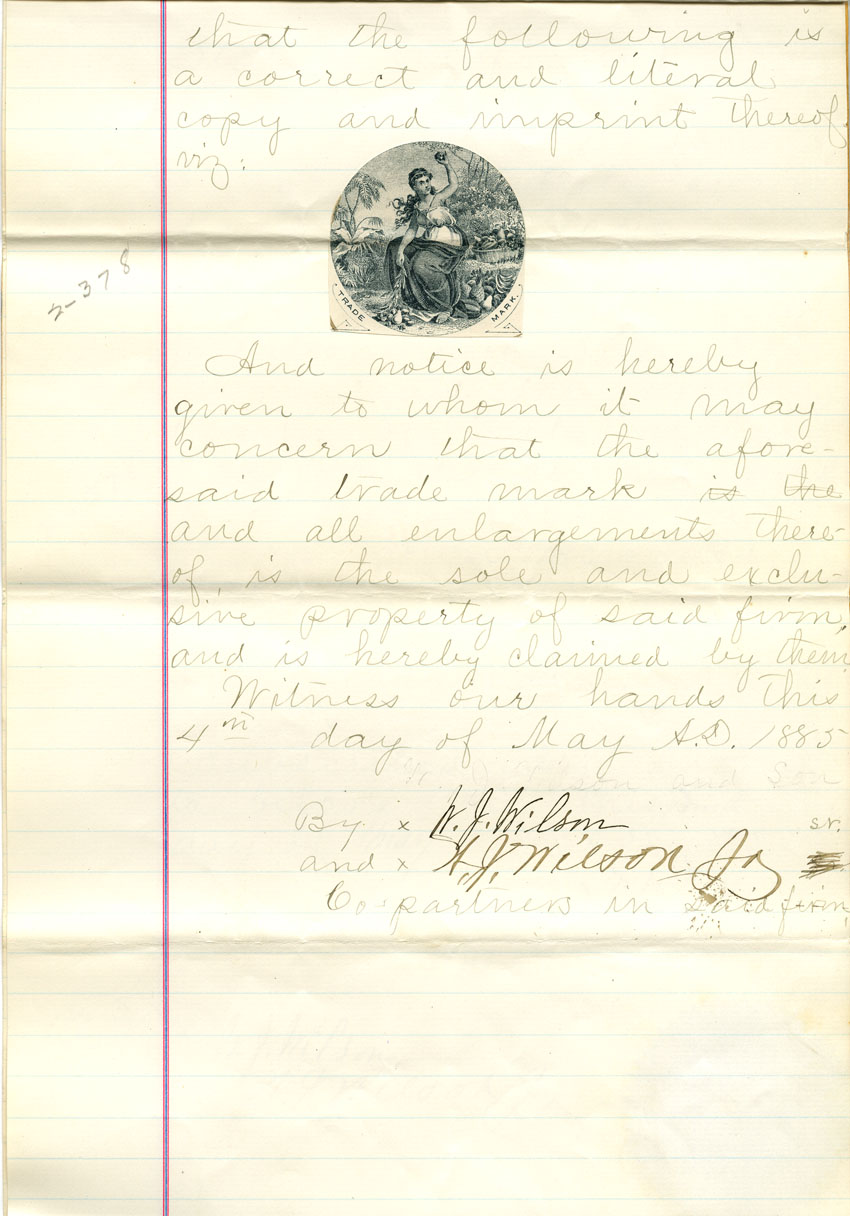 that the following is
a correct and literal
copy and imprint thereof.
viz:
TRADE MARK.
2-378
And notice is hereby
given to whom it may
concern that the afore-
said trade mark is the
and all enlargements there-
of, is the sole and exclu-
sive property of said firm,
and is hereby claimed by them
Witness our hands this
4th day of May A.D. 1885
Wilson and Son
By x W. J. Wilson sr.
and x W. J. Wilson Jr
Co-partners in said firm.